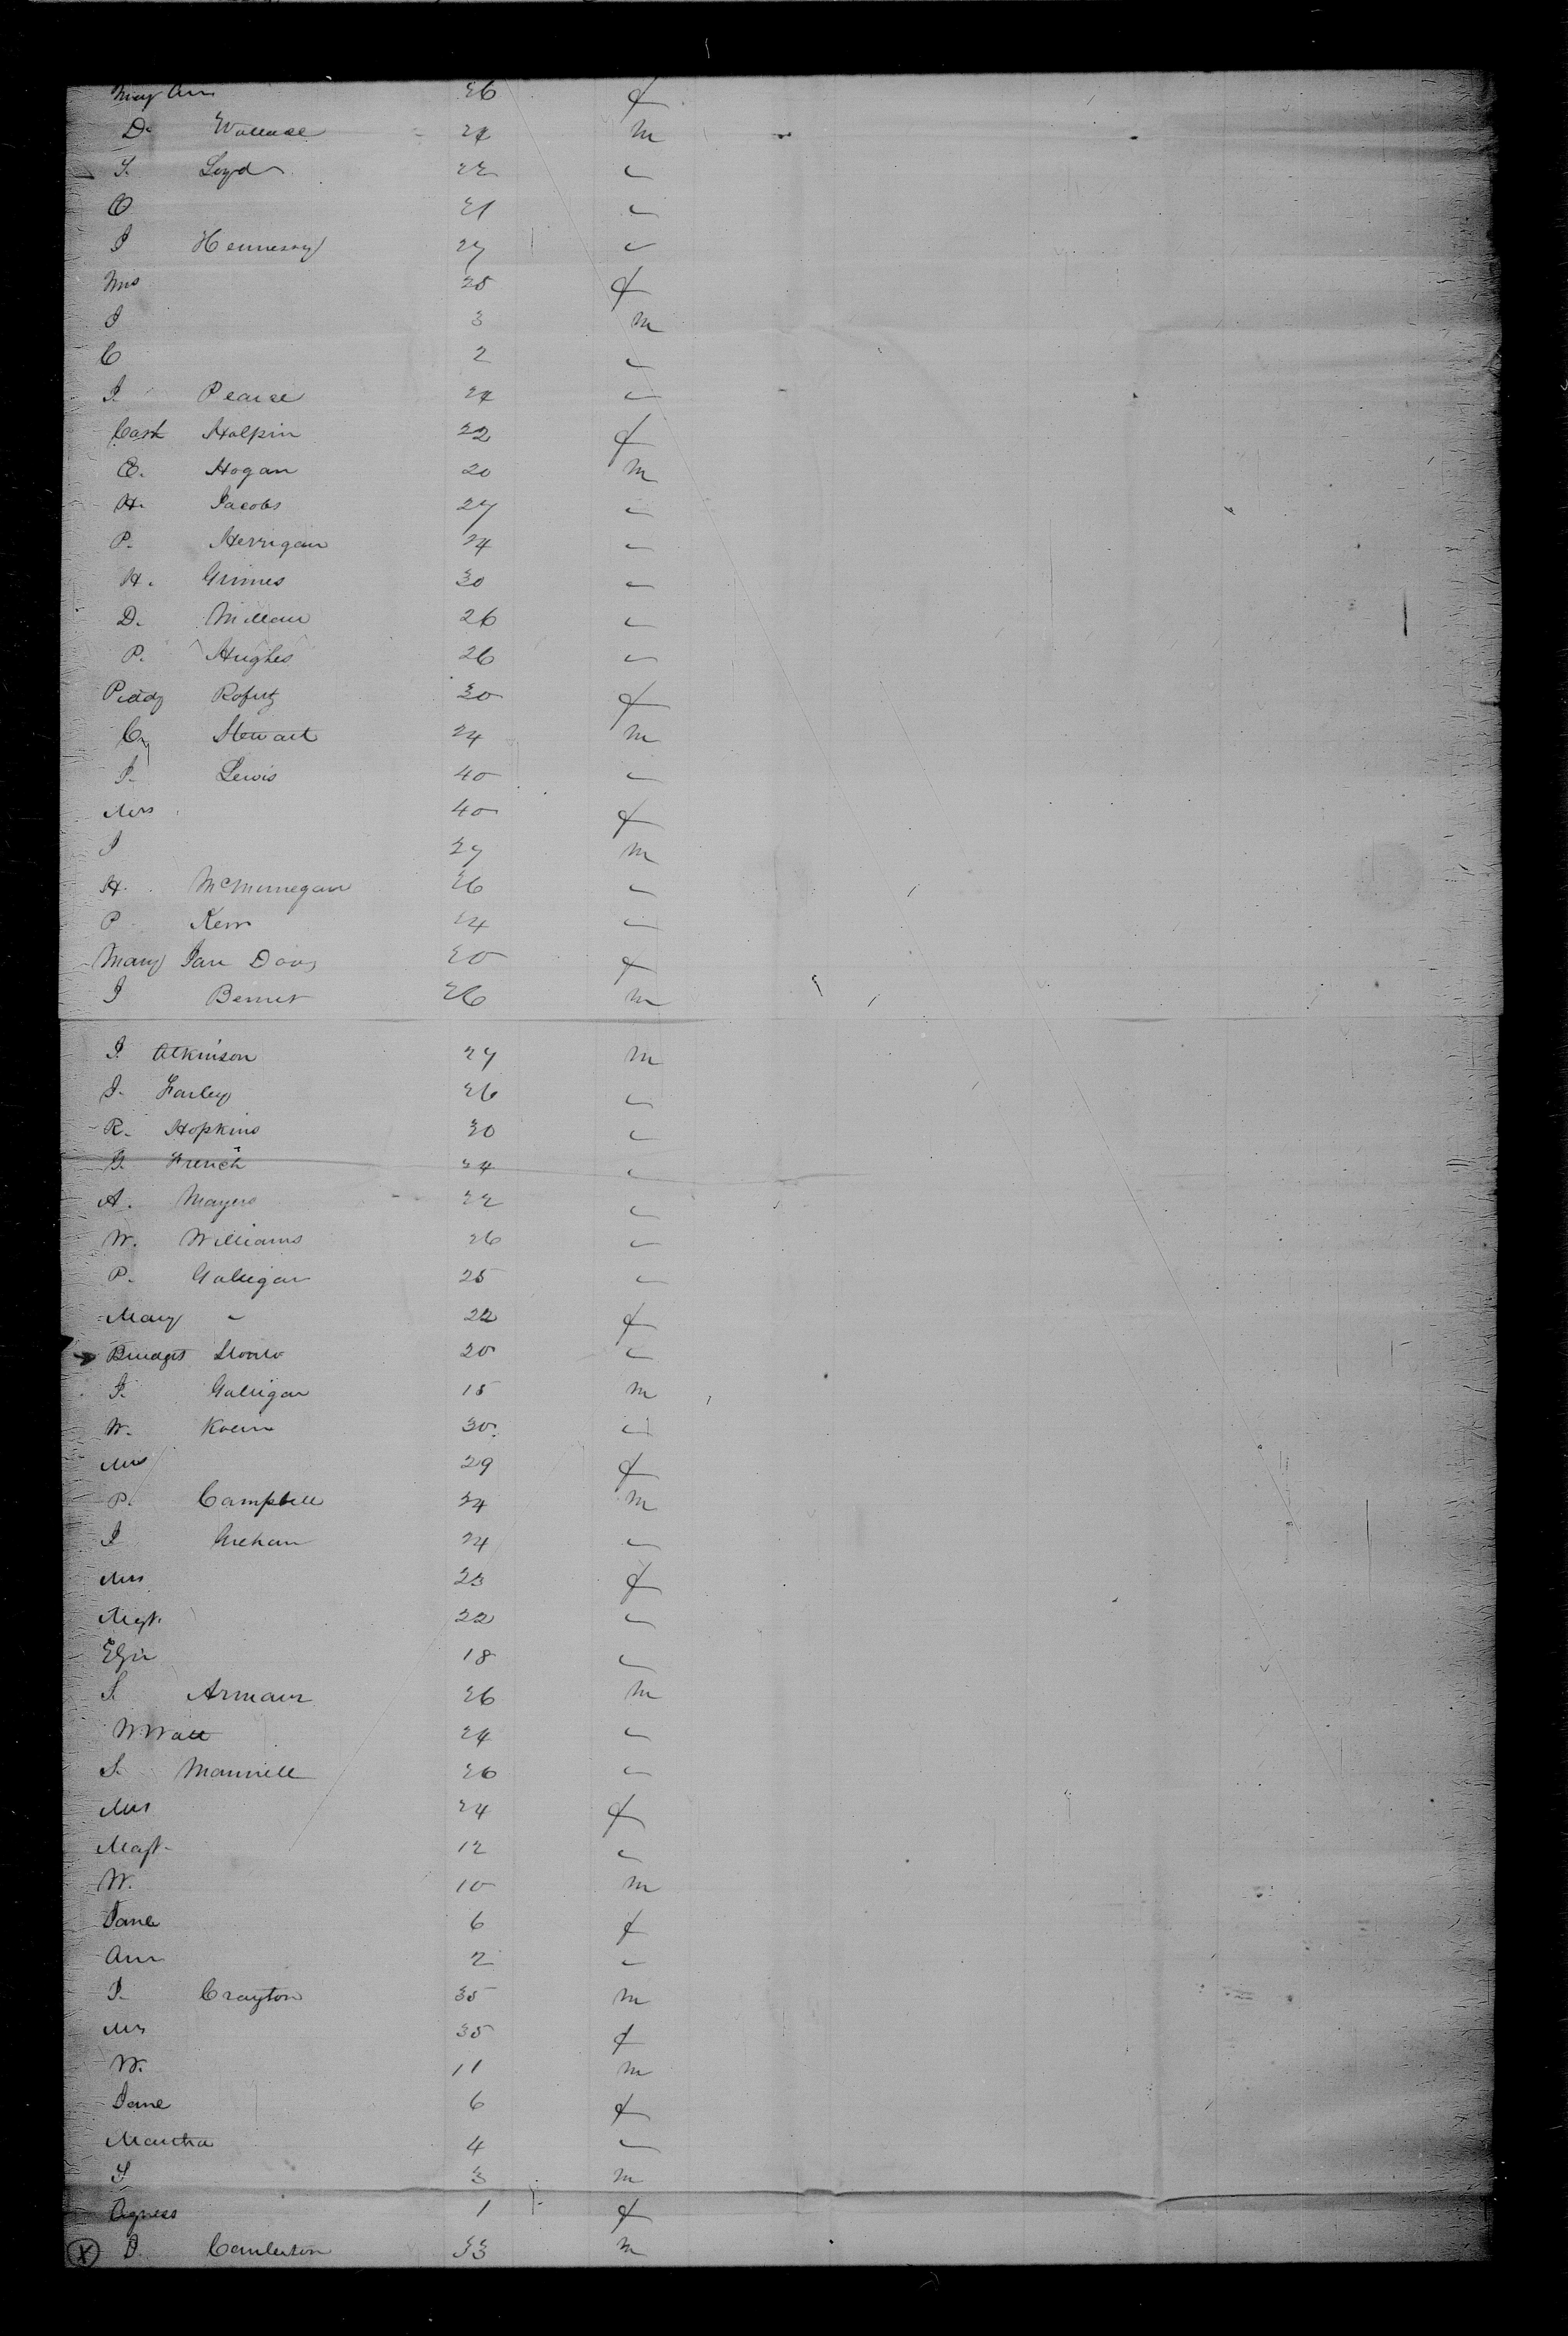 Mary Ann 26 f
D. Wallace 24 m
S. Loyd 22 "
O 21 "
J Hennessey 27 "
Mrs 25 f
J 3 m
C 2 "
J. Pearce 24 "
Cath Halpin 22 f
E. Hogan 20 m
H. Jacobs 27 "
P. Herrigan 24 "
H. Grimes 30 "
D. Millan 26 "
P. Hughes 26 "
Piddy 30 f
Stewart 24 m
J. Lewis 40 "
Mrs 40 f
J 27 m
H. McMurnegan 26 "
P Kerr 24 "
Mary Jane Davis 20 f
J Bennet 26 m
J. Atkinson 27 m
J. Farley 26 "
R. Hopkins 30 "
G. French 24 "
A. Mayers 22 "
W. Williams 26 "
P. Galligan 25 "
Mary " 22 f
Bridget 20 "
J. Galligan 15 m
W. 30 "
Mrs 29 f
P. Campbell 24 m
J Grehan 24 "
Mrs 23 f
Mgt. 22 "
Eliza 18 "
S. Armour 26 m
W Watt 24 "
S. Mannell 26 "
Mrs 24 f
Magt. 12 "
W. 10 m
Jane 6 f
Ann 2 "
J. Crayton 35 m
Mrs 35 f
W. 11 m
Jane 6 f
Martha 4 "
S 3 m
Agness 1 f
X D. 33 m